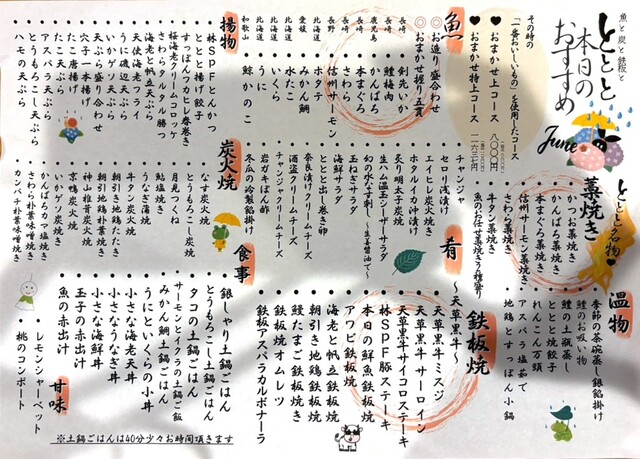 魚と炭と鉄板と
ととと
本日の
おすすめ
June
その時の
「一番おいしいもの」を使用したコース
♥おまかせ上コース 八〇〇〇円
♥おまかせ特上コース
魚
◎お造り盛合わせ
◎おまかせ握り五貫
長崎 剣先いか
長崎 鱧梅肉
鹿児島 かんぱち
長崎 本まぐろ
長崎 さわら
長野 信州サーモン
北海道 ホタテ
愛媛 みかん鯛
北海道 水たこ
北海道 いくら
北海道 うに
和歌山 鯨かのこ
揚物
林SPFとんかつ
ととと揚げ餃子
すっぽんフカヒレ春巻き
桜海老クリームコロッケ
さわらタルタル勝つ
海老と帆立天ぷら
天使海老フライ
うに磯辺天ぷら
いかゲソ天ぷら
天ぷら盛り合わせ
穴子一本揚げ
たこ唐揚げ
たこ天ぷら
アスパラ天ぷら
とうもろこし天ぷら
ハモの天ぷら
ととと名物♥
藁焼き
かつお藁焼き
かんぱち藁焼き
本まぐろ藁焼き
信州サーモン藁焼き
さわら藁焼き
牛タン藁焼き
魚のお任せ藁焼き3種盛り
肴
チャンジャ
セロリ浅漬け
エイヒレ炭火焼き
ホタルイカ沖漬け
炙り明太子炭焼
生ハム温玉シーザーサラダ
幻の水なす刺し
玉ねぎサラダ
海鮮サラダ
ととと出し巻き玉子
奈良漬けクリームチーズ
酒盗クリームチーズ
チャンジャクリームチーズ
岩ガキぽん酢
冬瓜の冷製餡掛け
炭火焼
なす炭火焼
とうもろこし炭焼
月見つくね
鮎塩焼き
うなぎ蒲焼
牛タン炭焼き
朝引き地鶏たたき
朝引き地鶏朴葉焼き
神山椎茸炭火焼
京鴨炭火焼
いかゲソ炭焼き
かんぱちカツ塩焼き
さわら朴葉味噌焼き
カンパチ朴葉味噌焼き
温物
季節の茶碗蒸し銀餡掛け
鱧のお吸い物
鱧の土瓶蒸し
ととと焼餃子
れんこん万頭
アスパラ塩茹で
地鶏とすっぽん小鍋
鉄板焼
～天草黒牛～
天草黒牛ミスジ
天草黒牛サーロイン
天草黒牛サイコロステーキ
林SPF豚ステーキ
本日の鮮魚鉄板焼き
アワビ鉄板焼
海老と帆立鉄板焼
朝引き地鶏鉄板焼き
鰻たまご鉄板焼き
鉄板焼オムレツ
鉄板アスパラカルボナーラ
食事
銀しゃり土鍋ごはん
とうもろこし土鍋ごはん
タコの土鍋ごはん
サーモンとイクラの土鍋ご飯
みかん鯛土鍋ごはん
うにといくらの小丼
小さなうなぎ丼
小さな海老天丼
小さな海鮮丼
玉子の赤出汁
魚の赤出汁
甘味
レモンシャーベット
桃のコンポート
※土鍋ごはんは40分少々お時間頂きます